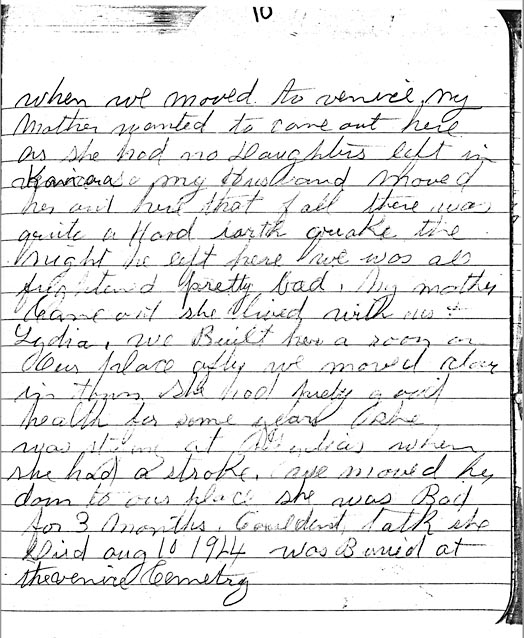 10
when we moved to venice, my
Mother wanted to come out here
as she had no Daughters left in
Kansas my Husband moved
her out here that fall there was
quite a Hard earth quake the
night he left here we was all
frightened pretty bad. My mother
Came out she lived with us &
Lydia. we Built her a room on
Our place after we moved
in town she had prety good
health for some years she
was at Lydias when
she had a stroke. we moved her
down to our place she was Bad
for 3 Months. Couldent talk she
Died aug 10 1944 was Buried at
the venice Cemetry